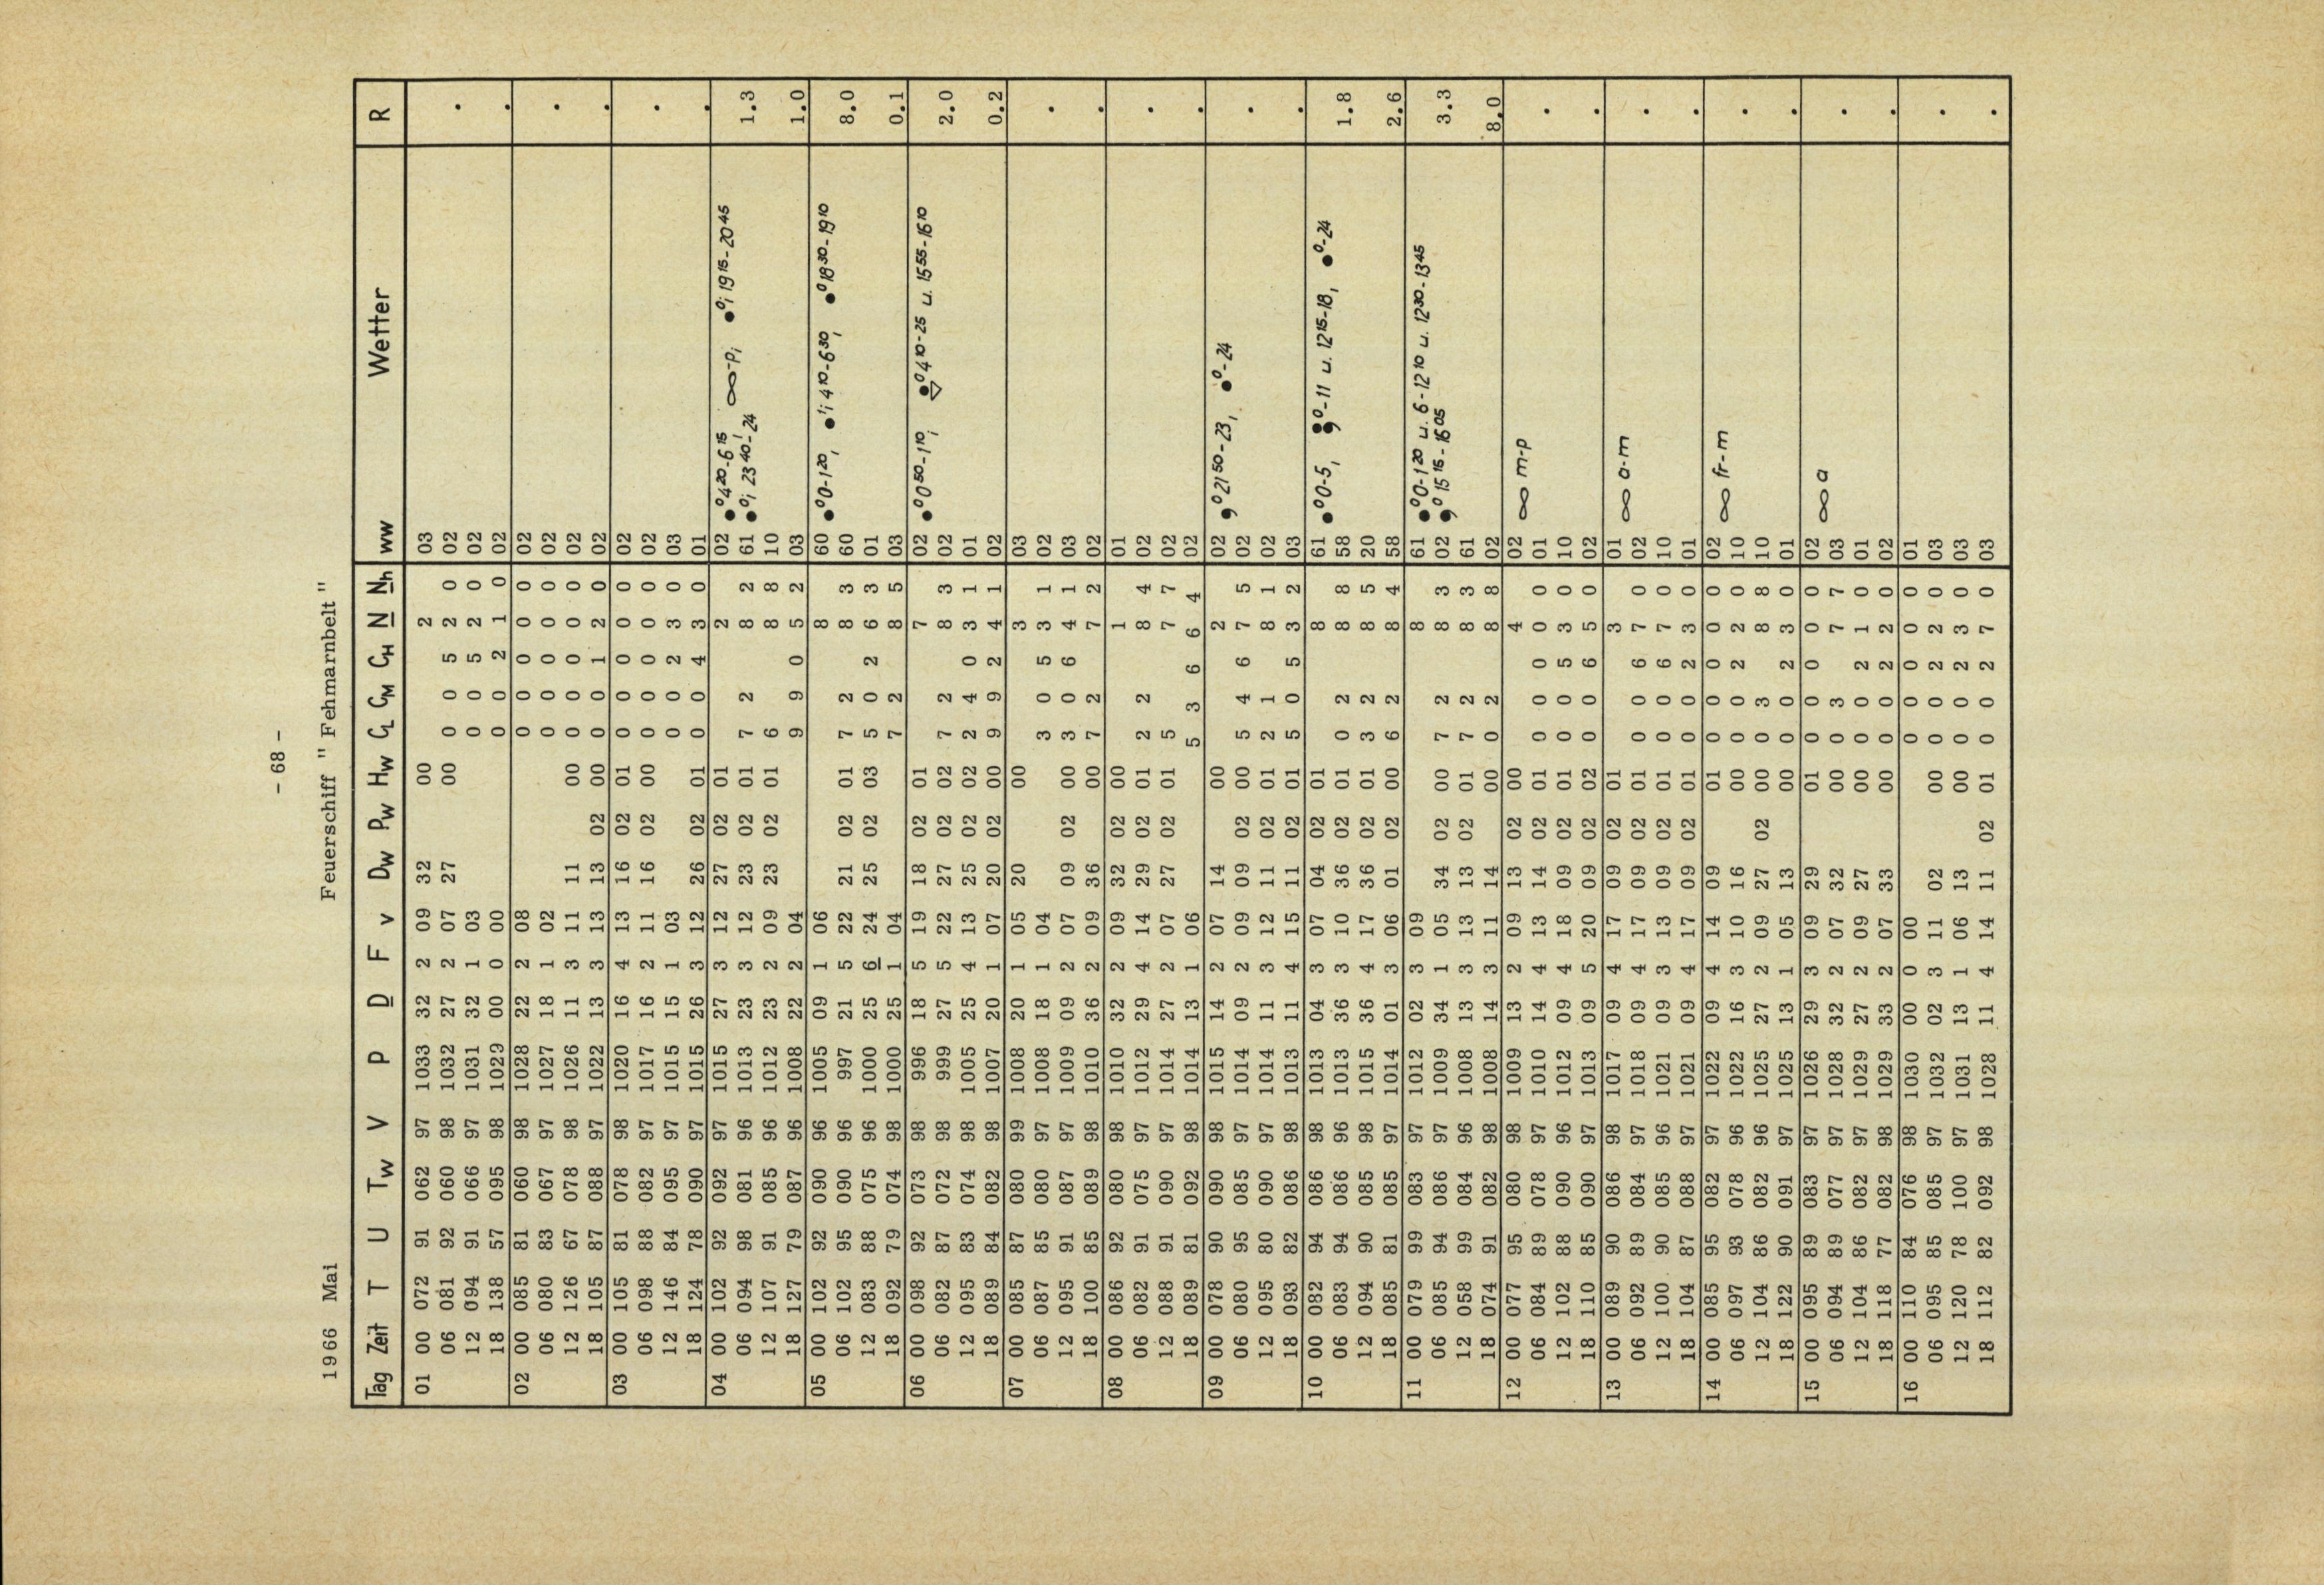 - 68 -
Feuerschiff " Fehmarnbelt "
1966 Mai
Tag Zeit T U Tw V P D F v Dw Pw Hw CL CM CH N Nh ww Wetter R
01 00 072 91 062 97 1033 32 2 09 32 00 2 03
06 081 92 060 98 1032 27 2 07 27 00 0 0 5 2 0 02 .
12 094 91 066 97 1031 32 1 03 0 0 5 2 0 02
18 138 57 095 98 1029 00 0 00 0 0 2 1 0 02 .
02 00 085 81 060 98 1028 22 2 08 0 0 0 0 0 02
06 080 83 067 97 1027 18 1 02 0 0 0 0 0 02 .
12 126 67 078 98 1026 11 3 11 11 00 0 0 0 0 0 02
18 105 87 088 97 1022 13 3 13 13 02 00 0 0 1 2 0 02 .
03 00 105 81 078 98 1020 16 4 13 16 02 01 0 0 0 0 0 02
06 098 88 082 97 1017 16 2 11 16 02 00 0 0 0 0 0 02 .
12 146 84 095 97 1015 15 1 03 0 0 2 3 0 03
18 124 78 090 97 1015 26 3 12 26 02 01 0 0 4 3 0 01 .
04 00 102 92 092 97 1015 27 3 12 27 02 01 2 02 ●⁰4²⁰-6¹⁵ ∞-p; ●⁰; 19¹⁵-20⁴⁵
06 094 98 081 96 1013 23 3 12 23 02 01 7 2 8 2 61 ●⁰; 23⁴⁰-24 1.3
12 107 91 085 96 1012 23 2 09 23 02 01 6 8 8 10
18 127 79 087 96 1008 22 2 04 9 9 0 5 2 03 1.0
05 00 102 92 090 96 1005 09 1 06 8 60 ●⁰0-1²⁰, ●¹; 4¹⁰-6³⁰, ●⁰18³⁰-19¹⁰
06 102 95 090 96 997 21 5 22 21 02 01 7 2 8 3 60 8.0
12 083 88 075 96 1000 25 6 24 25 02 03 5 0 2 6 3 01
18 092 79 074 98 1000 25 1 04 7 2 8 5 03 0.1
06 00 098 92 073 98 996 18 5 19 18 02 01 7 02 ●⁰0⁵⁰-1¹⁰, ●▽⁰4¹⁰-25 u. 15⁵⁵-16¹⁰
06 082 87 072 98 999 27 5 22 27 02 02 7 2 8 3 02 2.0
12 095 83 074 98 1005 25 4 13 25 02 02 2 4 0 3 1 01
18 089 84 082 98 1007 20 1 07 20 02 00 9 9 2 4 1 02 0.2
07 00 085 87 080 99 1008 20 1 05 20 00 3 03
06 087 85 080 97 1008 18 1 04 3 0 5 3 1 02 .
12 095 91 087 97 1009 09 2 07 09 02 00 3 0 6 4 1 03
18 100 85 089 98 1010 36 2 09 36 00 7 2 7 2 02 .
08 00 086 92 080 98 1010 32 2 09 32 02 00 1 01
06 082 91 075 97 1012 29 4 14 29 02 01 2 2 8 4 02 .
12 088 91 090 97 1014 27 2 07 27 02 01 5 7 7 02
18 089 81 092 98 1014 13 1 06 5 3 6 6 4 02 .
09 00 078 90 090 98 1015 14 2 07 14 00 2 02 ❟⁰21⁵⁰-23, ●⁰-24
06 080 95 085 97 1014 09 2 09 09 02 00 5 4 6 7 5 02 .
12 095 80 090 97 1014 11 3 12 11 02 01 2 1 8 1 02
18 093 82 086 98 1013 11 4 15 11 02 01 5 0 5 3 2 03 .
10 00 082 94 086 98 1013 04 3 07 04 02 01 8 61 ●⁰0-5, ●❟⁰-11 u. 12¹⁵-18, ●⁰-24
06 083 94 086 96 1013 36 3 10 36 02 01 0 2 8 8 58 1.8
12 094 90 085 98 1015 36 4 17 36 02 01 3 2 8 5 20
18 085 81 085 97 1014 01 3 06 01 02 00 6 2 8 4 58 2.6
11 00 079 99 083 97 1012 02 3 09 8 61 ●⁰0-1²⁰ u. 6-12¹⁰ u. 12³⁰-13⁴⁵
06 085 94 086 97 1009 34 1 05 34 02 00 7 2 8 3 02 ❟⁰15¹⁵-16⁰⁵ 3.3
12 058 99 084 96 1008 13 3 13 13 02 01 7 2 8 3 61
18 074 91 082 98 1008 14 3 11 14 00 0 2 8 8 02 8.0
12 00 077 95 080 98 1009 13 2 09 13 02 00 4 02 ∞ m-p
06 084 89 078 97 1010 14 4 13 14 02 01 0 0 0 0 0 01 .
12 102 88 090 96 1012 09 4 18 09 02 01 0 0 5 3 0 10
18 110 85 090 97 1013 09 5 20 09 02 02 0 0 6 5 0 02 .
13 00 089 90 086 98 1017 09 4 17 09 02 01 3 01 ∞ a-m
06 092 89 084 97 1018 09 4 17 09 02 01 0 0 6 7 0 02 .
12 100 90 085 96 1021 09 3 13 09 02 01 0 0 6 7 0 10
18 104 87 088 97 1021 09 4 17 09 02 01 0 0 2 3 0 01 .
14 00 085 95 082 97 1022 09 4 14 09 01 0 0 0 0 0 02 ∞ fr-m
06 097 93 078 96 1022 16 3 10 16 00 0 0 2 2 0 10 .
12 104 86 082 96 1025 27 2 09 27 02 00 0 3 8 8 10
18 122 90 091 97 1025 13 1 05 13 00 0 0 2 3 0 01 .
15 00 095 89 083 97 1026 29 3 09 29 01 0 0 0 0 0 02 ∞ a
06 094 89 077 97 1028 32 2 07 32 00 0 3 7 7 03 .
12 104 86 082 97 1029 27 2 09 27 00 0 0 2 1 0 01
18 118 77 082 98 1029 33 2 07 33 00 0 0 2 2 0 02 .
16 00 110 84 076 98 1030 00 0 00 0 0 0 0 0 01
06 095 85 085 97 1032 02 3 11 02 00 0 0 2 2 0 03 .
12 120 78 100 97 1031 13 1 06 13 00 0 0 2 3 0 03
18 112 82 092 98 1028 11 4 14 11 02 01 0 0 2 7 0 03 .